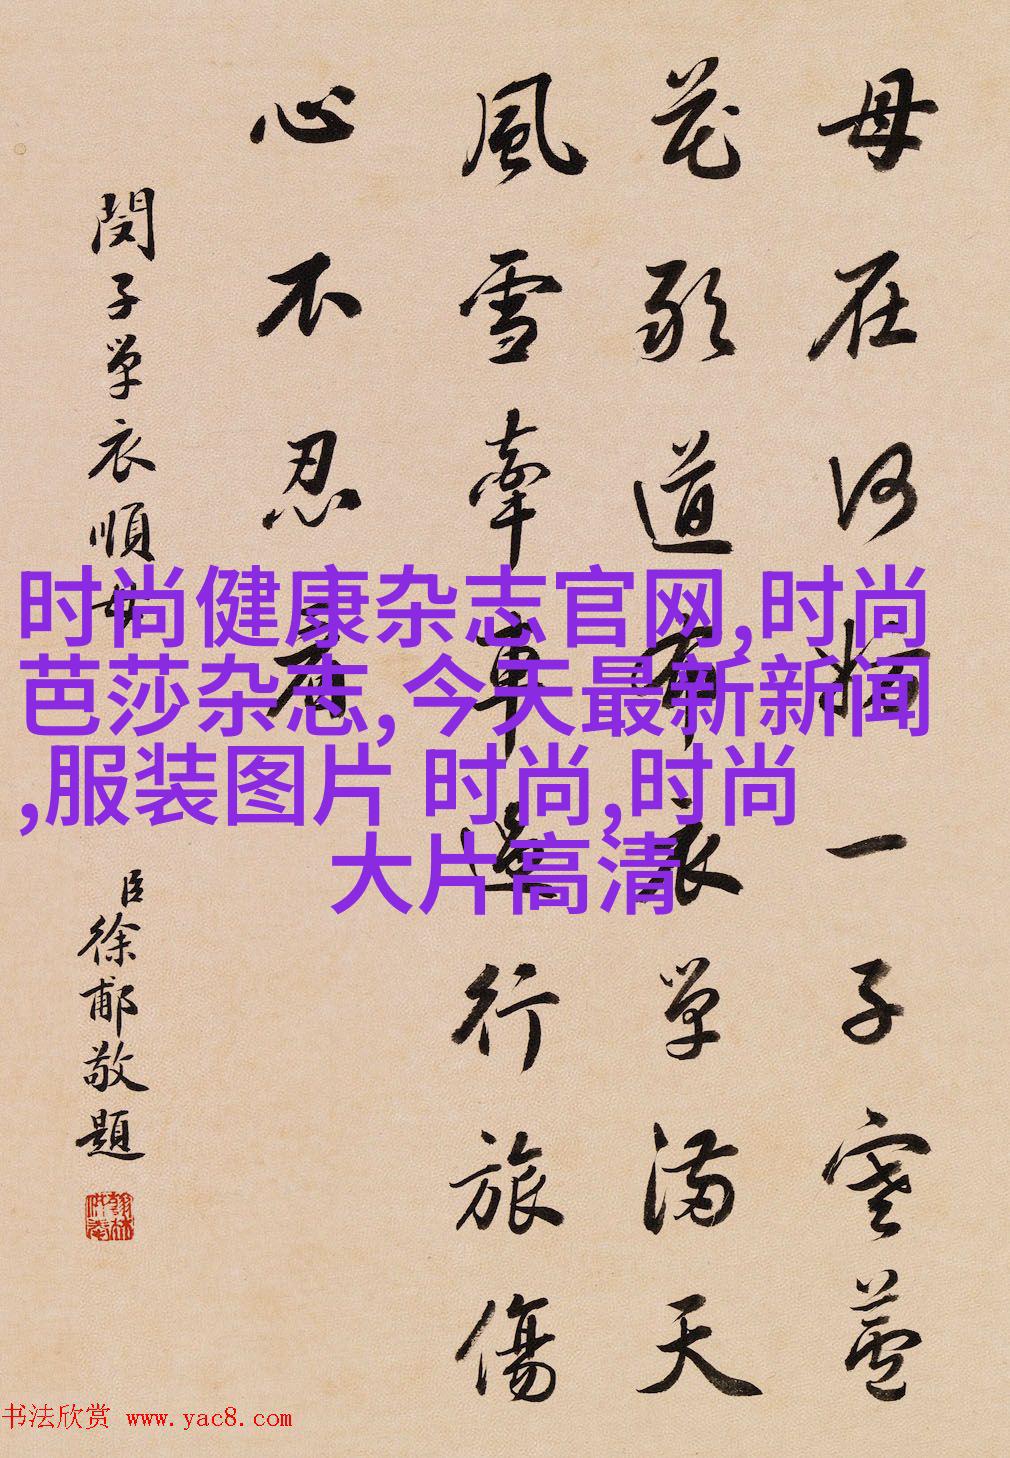 母在何妨一子寒蘆
花敢道衣單滿天
風雪牽車行旅傷
心不忍看
閔子單衣順母
臣徐郙敬題
翰林供奉
时尚健康杂志官网,时尚
芭莎杂志,今天最新新闻
,服装图片 时尚,时尚
大片高清
书法欣赏 www.yac8.com